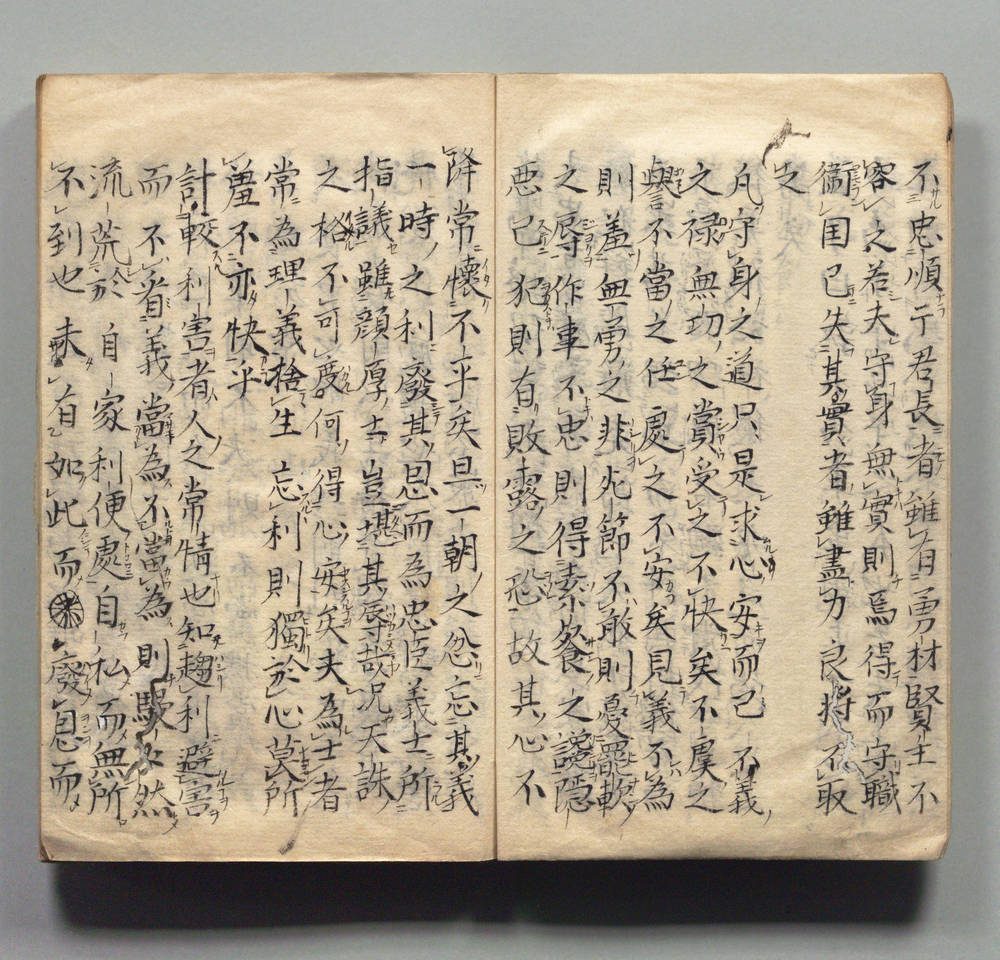 不忠順于君長者雖有勇材賢主不
容之若夫守身無實則焉得而守職
衞国已失其實者雖盡力良将不取
之
凡守身之道只是求心安而已不義
之禄無功之賞受之不快矣不虞之
譽不當之任處之不安矣見義不為
則羞無勇之非死節不敢則憂罷軟
之辱作事不忠則得素餐之謗隠
悪己犯則有敗露之恐故其心不
降常懐不乎矣且一朝之忿忘其義
一時之利廢其恩而為忠臣義士所
指議雖顔厚士豈堪其辱哉况天誅
之格不可度何得心安矣夫為士者
常為理義捨生忘利則獨於心莫所
羞不亦快乎
計較利害者人之常情也知趨利避害
而不省義當為不當為則然
流荒於自家利便處自私而無所
不到也未有如此而廢恩而